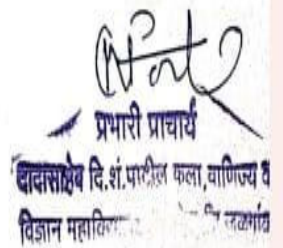 प्रभारी प्राचार्य
दादासाहेब दि.शं.पाटील कला,वाणिज्य व
विज्ञान